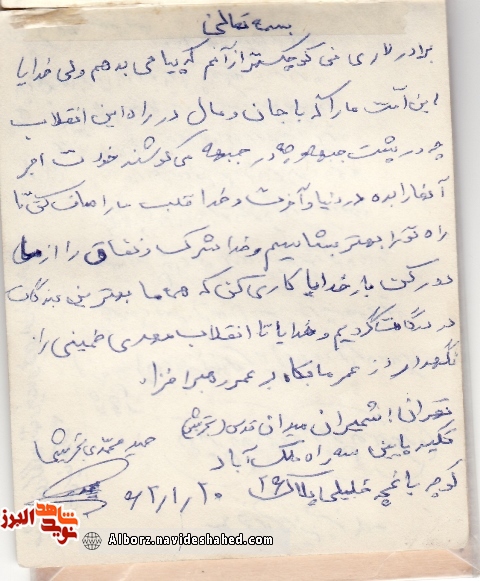 بسمه تعالی
برادر لاری من کوچکتر از آنم که پیامی بدهم ولی خدایا
این امت ما را که با جان و مال در راه این انقلاب
چه در پشت جبهه چه در جبهه می کوشند خودت اجر
آنها را بده در دنیا و آخرت و خدا قلب ما را صاف کن تا
راه تو را بهتر بشناسیم و خدا شرک و نفاق را از ما
دور کن بار خدایا کاری کن که همه ما بهترین بندگان
درگاهت گردیم و خدایا تا انقلاب مهدی خمینی را
نگهدار از عمر ما بکاه بر عمر رهبر افزا
تهران شمیران میدان قدس (تجریش)
حمید محمدی
کوچه باغچه خلیلی پلاک ۲۹
۶۲/۱/۲۰
شاهد
نوید
البرز
Alborz.navideshahed.com